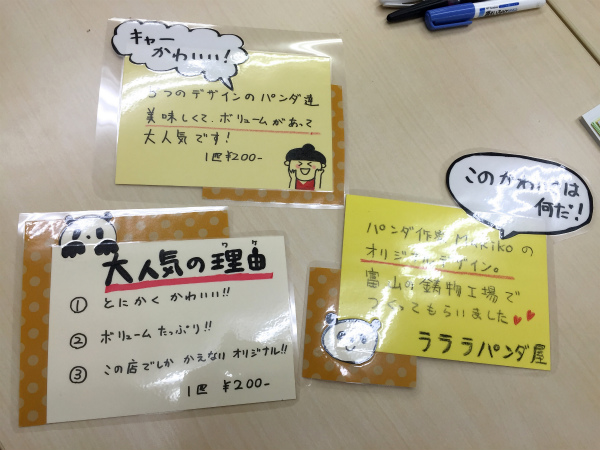 キャー
かわいい!
5つのデザインのパンダ達
美味しくて、ボリュームがあって
大人気です!
1匹¥200-
このかわいさは
何だ!
パンダ作家 Marikoの
オリジナルデザイン。
富山の鋳物工場で
つくってもらいました
ラララパンダ屋
ワケ
大人気の理由
① とにかく かわいい!!
② ボリュームたっぷり!!
③ この店でしか かえない オリジナル!!
1匹 ¥200-